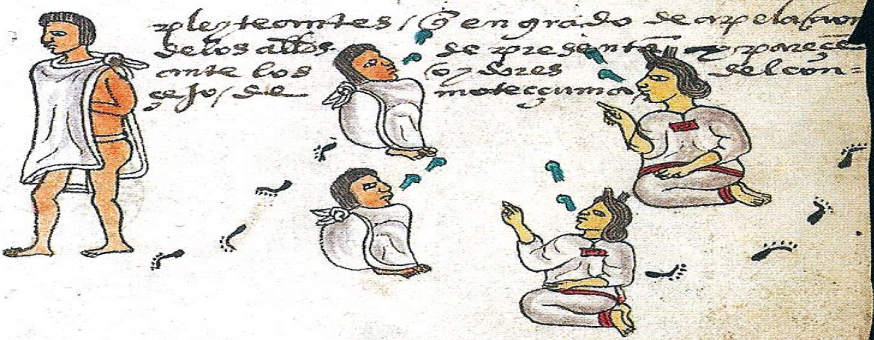 pleyteantes / q̃ en grado de apelaçion
delos allds. se presentã y pareçē
ante los oydores del con=
sejo / de motecçuma